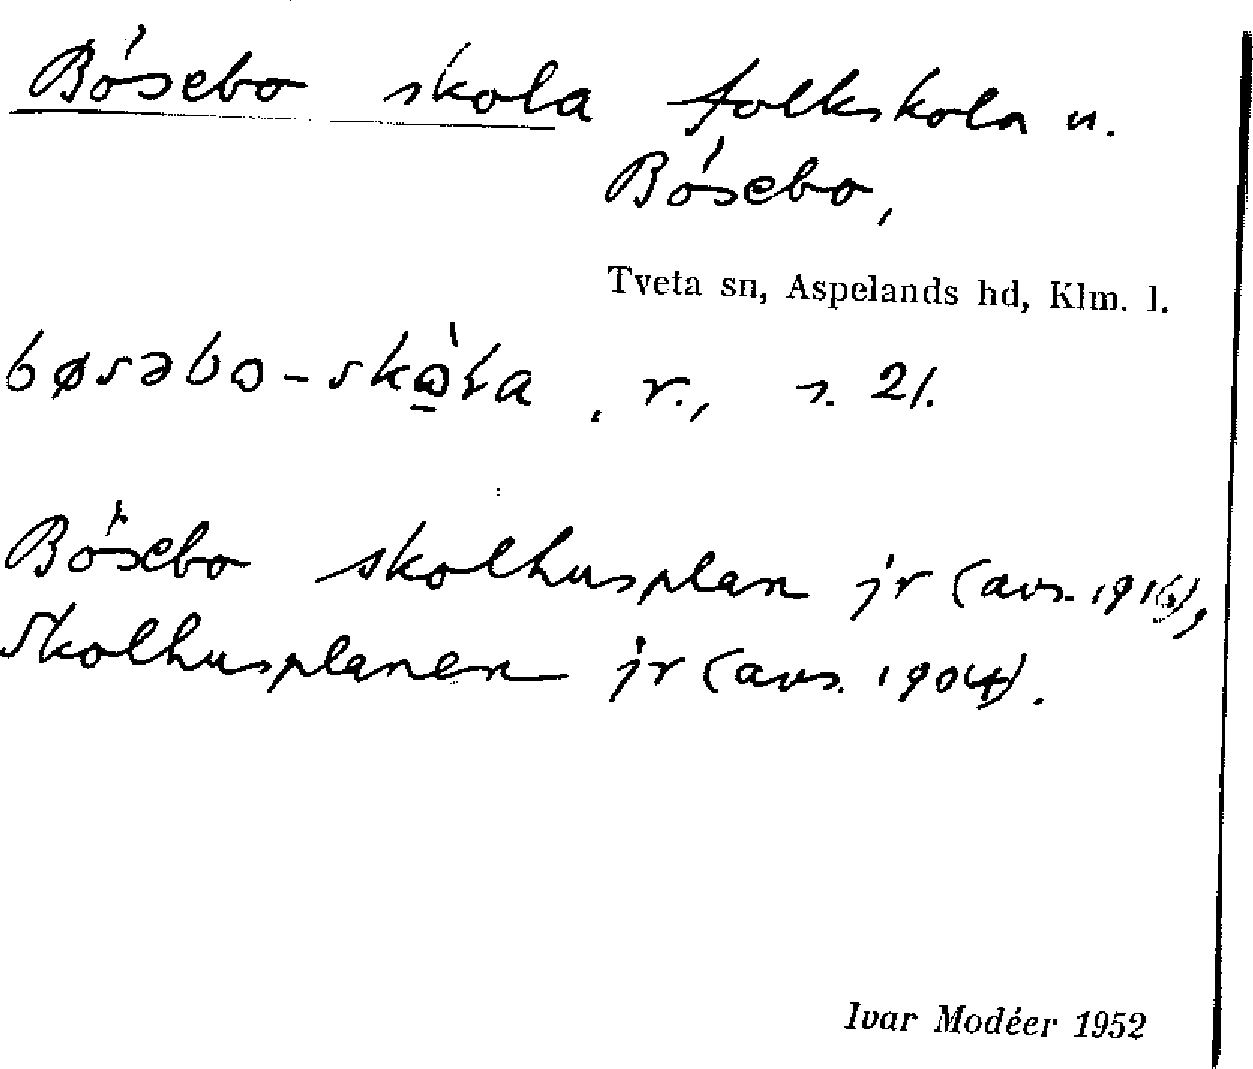 Bösebo skola folkskola u.
Bösebo,
Tveta sn, Aspelands hd, Klm. l.
bøsəbo-skò̠ɫa, r., s. 21.
Bösebo skolhusplan jr (avs. 1916),
Skolhusplanen jr (avs. 1904).
Ivar Modéer 1952